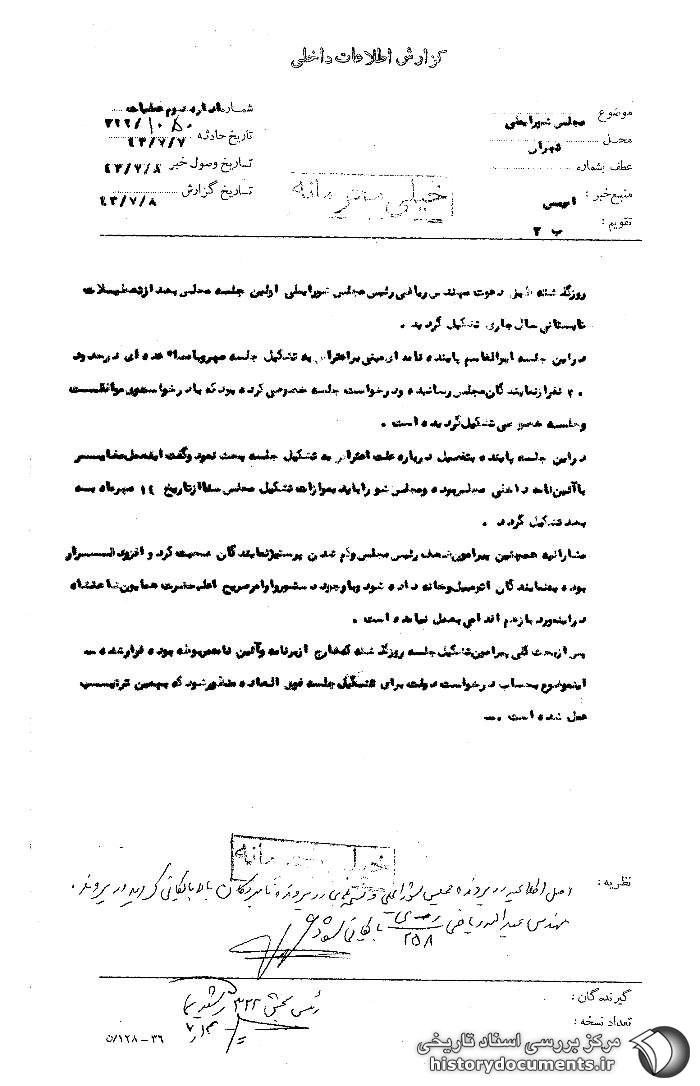 گزارش اطلاعات داخلی
موضوع مجلس شورایملی
محل تهران
عطف بشماره
منبع خبر :
تقویم : ب ۲
شماره اداره سوم عملیات
۳۲۲/
تاریخ حادثه ۴۳/۷/۷
تاریخ وصول خبر ۴۳/۷/۸
تاریخ گزارش ۴۳/۷/۸
خیلی محرمانه
روزگذشته دعوت مهندس ریاضی رئیس مجلس شورایملی اولین جلسه مجلس بعد از تعطیلات
تابستانی سال جاری تشکیل گردید .
دراین جلسه ابوالقاسم پاینده نامه ای مبنی براعتراض به تشکیل جلسه عده ای درحدود
۲۰ نفرازنمایندگان مجلس رسانیده ودرخواست جلسه خصوصی کرده بود که بادرخواست موافقت
وجلسه خصوصی تشکیل گردیده است .
دراین جلسه پاینده بتفصیل درباره علت اعتراض به تشکیل جلسه بحث نمود وگفت اینعمل مغایر
باآئین نامه داخلی مجلس بوده ومجلس شورا باید بموازات تشکیل مجلس سنا ازتاریخ ۱۴ مهرماه به
بعد تشکیل گردد .
مشارالیه همچنین پیرامون ضعف رئیس مجلس وکم شدن پرستیژنمایندگان صحبت کرد و افزود قرار
بوده بنمایندگان اتومبیل وخانه داده شود وباوجود دستورواوامرصریح اعلیحضرت همایون شاهنشاه
دراینمورد بازهم اقدامی بعمل نیامده است .
پس ازبحث کلی پیرامون تشکیل جلسه روزگذشته که خارج ازبرنامه وآئین نامه مربوطه بوده قرارشده
اینموضوع بحساب درخواست دولت برای تشکیل جلسه فوق العاده منظورشود که بهمین ترتیب
عمل شده است .
خیلی محرمانه
نظریه : اصل اطلاعیه در پرونده مجلس شورایملی و در پرونده نامبردگان بالا بایگانی گردید در پرونده
مهندس عبدالله ریاضی بایگانی شود
۲۵۸
گیرندگان :
رئیس بخش ۳۲۲
تعداد نسخه :
۳۶-۱۲۸/ن
مرکز بررسی اسناد تاریخی
historydocuments.ir